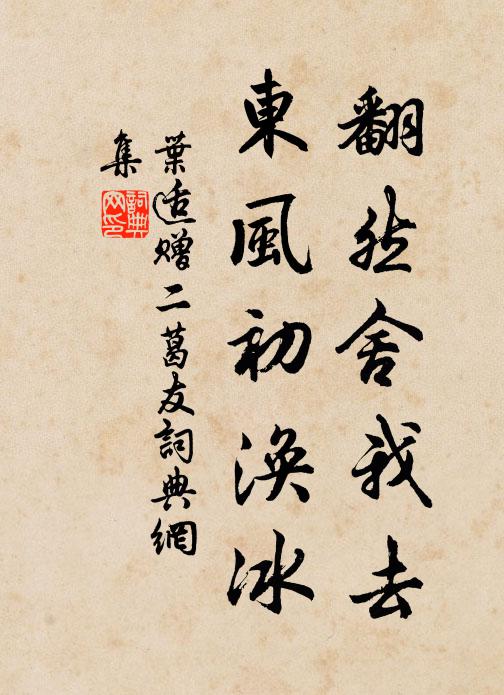 翻然舍我去
東風初渙冰
葉适贈二葛友詞典網
集
詞典網印